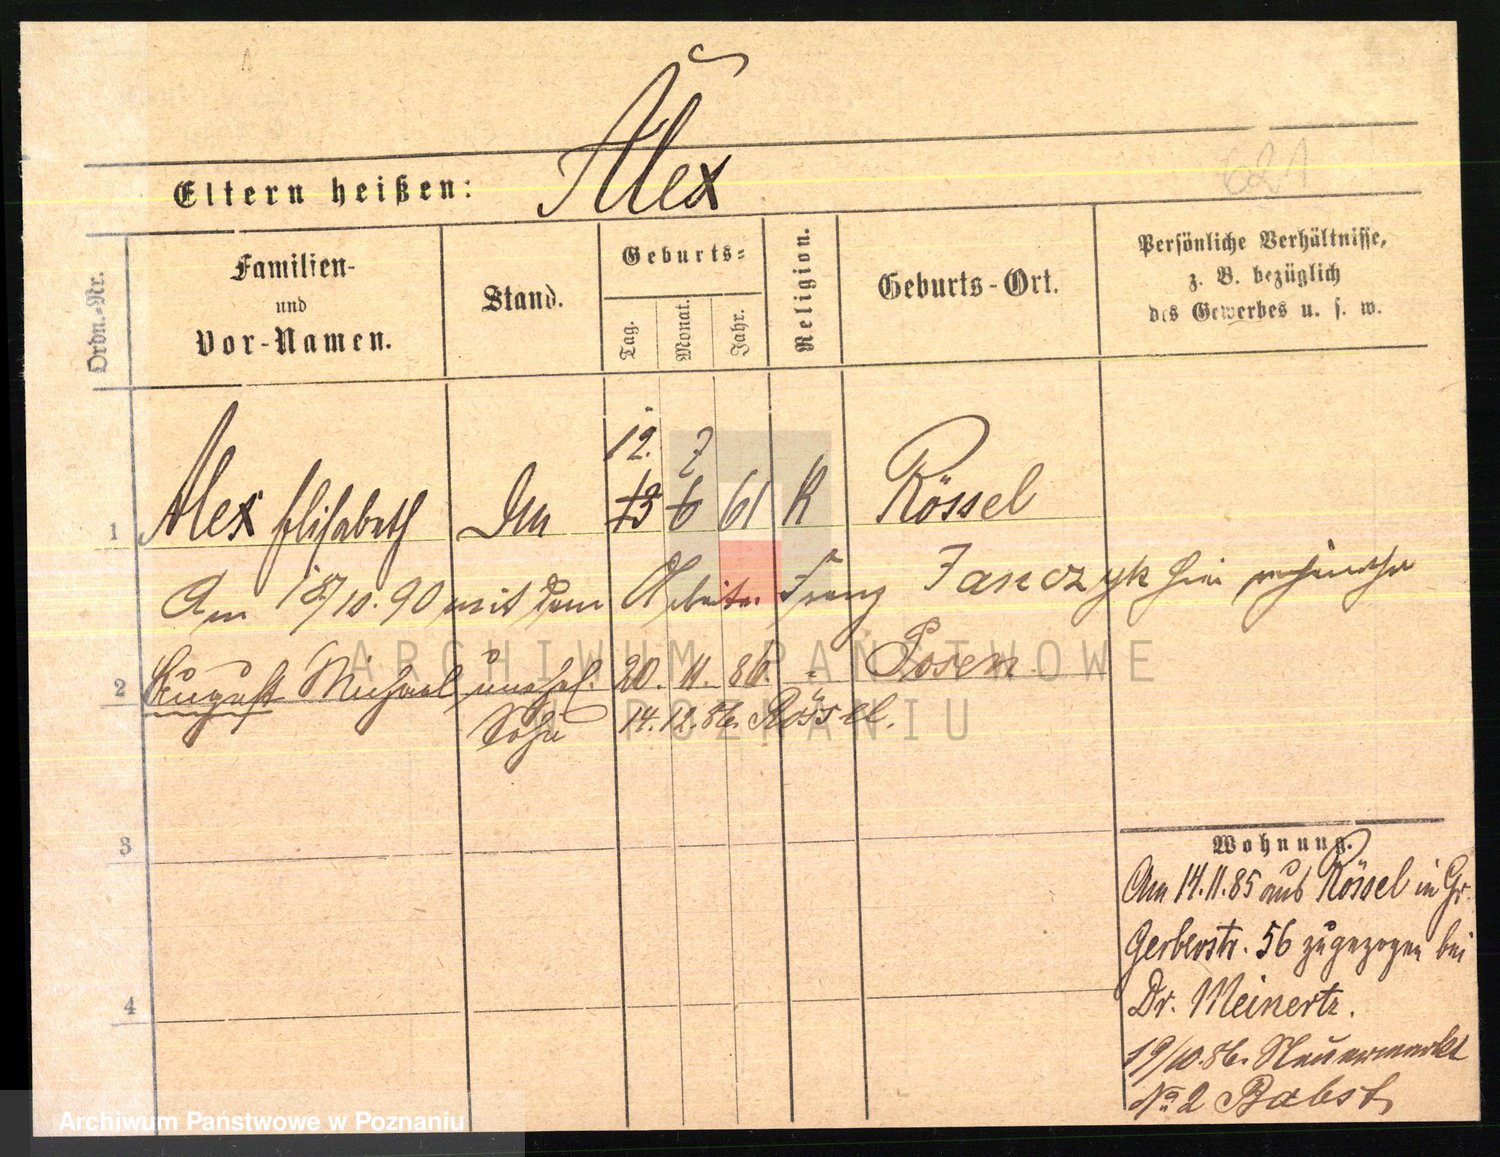 Alex
621
Eltern heißen:
Ordn.-Nr.
Familien-
und
Vor-Namen.
Stand.
Geburts-
Tag.
Monat.
Jahr.
Religion.
Geburts-Ort.
Persönliche Verhältnisse,
z. B. bezüglich
des Gewerbes u. s. w.
12. 7
1 Alex Elisabeth 13 6 61 K Rössel
Am 18/10.90 mit dem Arbeiter Franz Janczyk hier
2 August Michael unehel. 20. 11. 86. Posen
Sohn 14.12.86. Rössel.
3
4
Wohnung.
Am 14.11.85 aus Rössel in Gr.
Gerberstr. 56 zugezogen bei
Dr. Meinertz.
19/10.86. Neuermarkt
No 2 Babst
ARCHIWUM PAŃSTWOWE
W POZNANIU
Archiwum Państwowe w Poznaniu